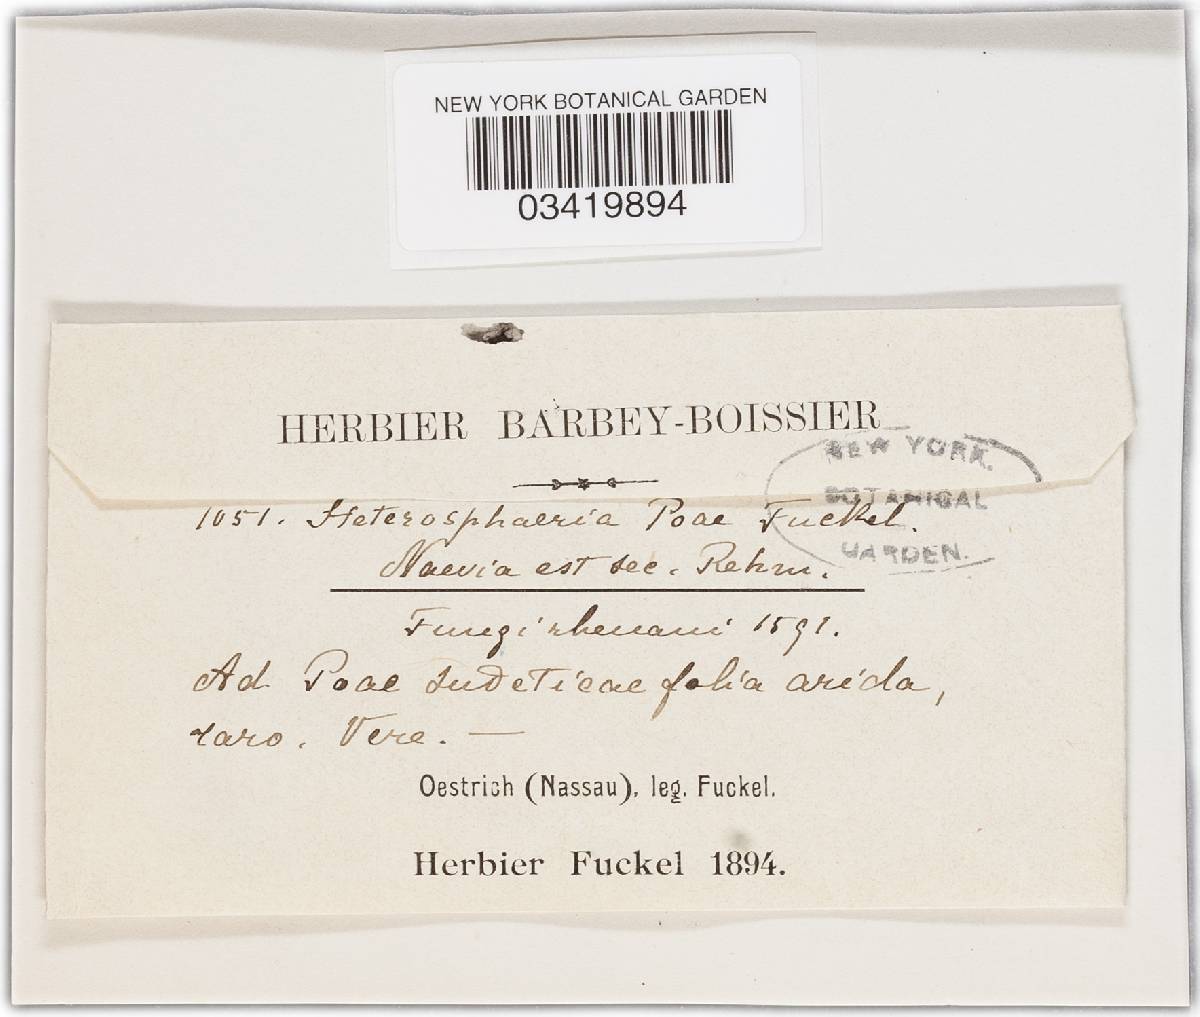 NEW YORK BOTANICAL GARDEN
03419894
HERBIER BARBEY-BOISSIER
NEW YORK.
BOTANICAL
GARDEN.
1051. Heterosphaeria Poae Fuckel.
Naevia est sec. Rehm.
Fungi rhenani 1591.
Ad Poae sudeticae folia arida,
raro. Vere. —
Oestrich (Nassau), leg. Fuckel.
Herbier Fuckel 1894.